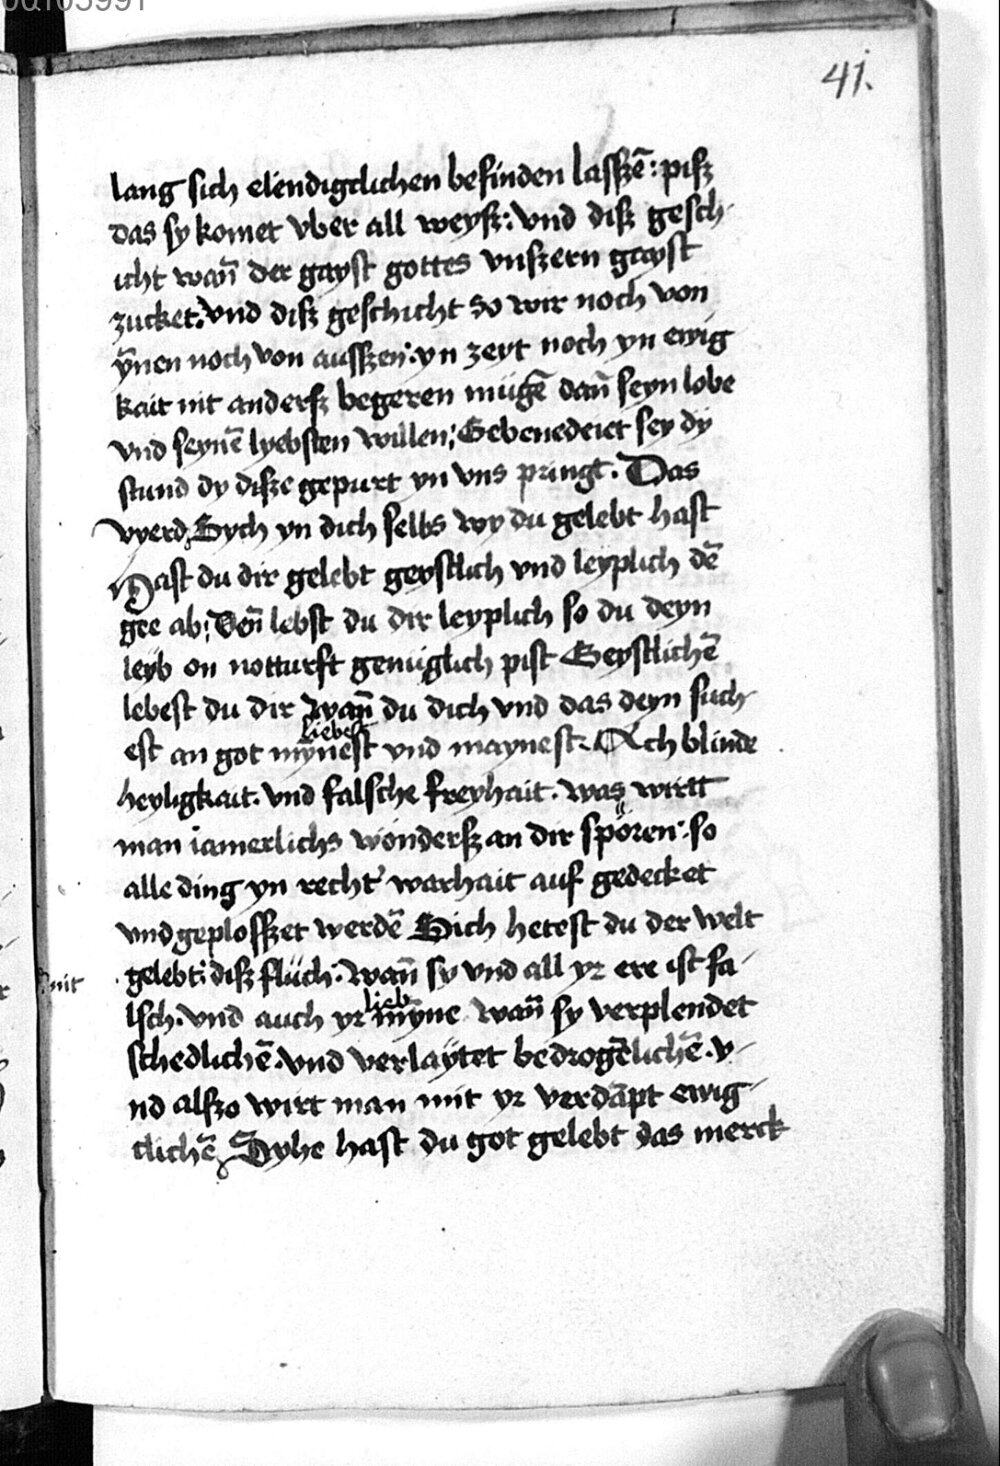 41.
lang sich elendigclichen befinden lasszē: pisz
das sy komet vber all weysz: vnd disz gesch-
icht wan̄ der gayst gottes vnszern gayst
zucket. vnd disz geschicht so wir noch von
ynnen noch von ausszen: yn zeyt noch yn ewig
kait nit andersz begeren mügē dan̄ seyn lobe
vnd seynē lyebsten willen; Gebenedeiet sey dy
stund dy disze gepurt yn vns pringt. Das
vyerd, Sych yn dich selbs wy du gelebt hast
Hast du dir gelebt geystlich vnd leyplich dē
gee ab; Den̄ lebst du dir leyplich so du deyn
leyb on notturft genüglich pist Geystlichē
lebest du dir wan̄ du dich vnd das deyn such-
liebest
est an got mynest vnd maynest. Ach blinde
heyligkait. vnd falsche freyhait. was wirtt
man iamerlichs wondersz an dir spören: so
alle ding yn recht' warhait auf gedecket
vnd geplosszet werdē Sich hetest du der welt
gelebt: disz flüch: wan̄ sy vnd all yr ere ist fa-
lieb
lsch. vnd auch yr myne wan̄ sy verplendet
schedlichē. vnd verlaytet bedrogēlichē. v-
nd alszo wirt man mit yr verdāpt ewig-
clichē Syhe hast du got gelebt das merck